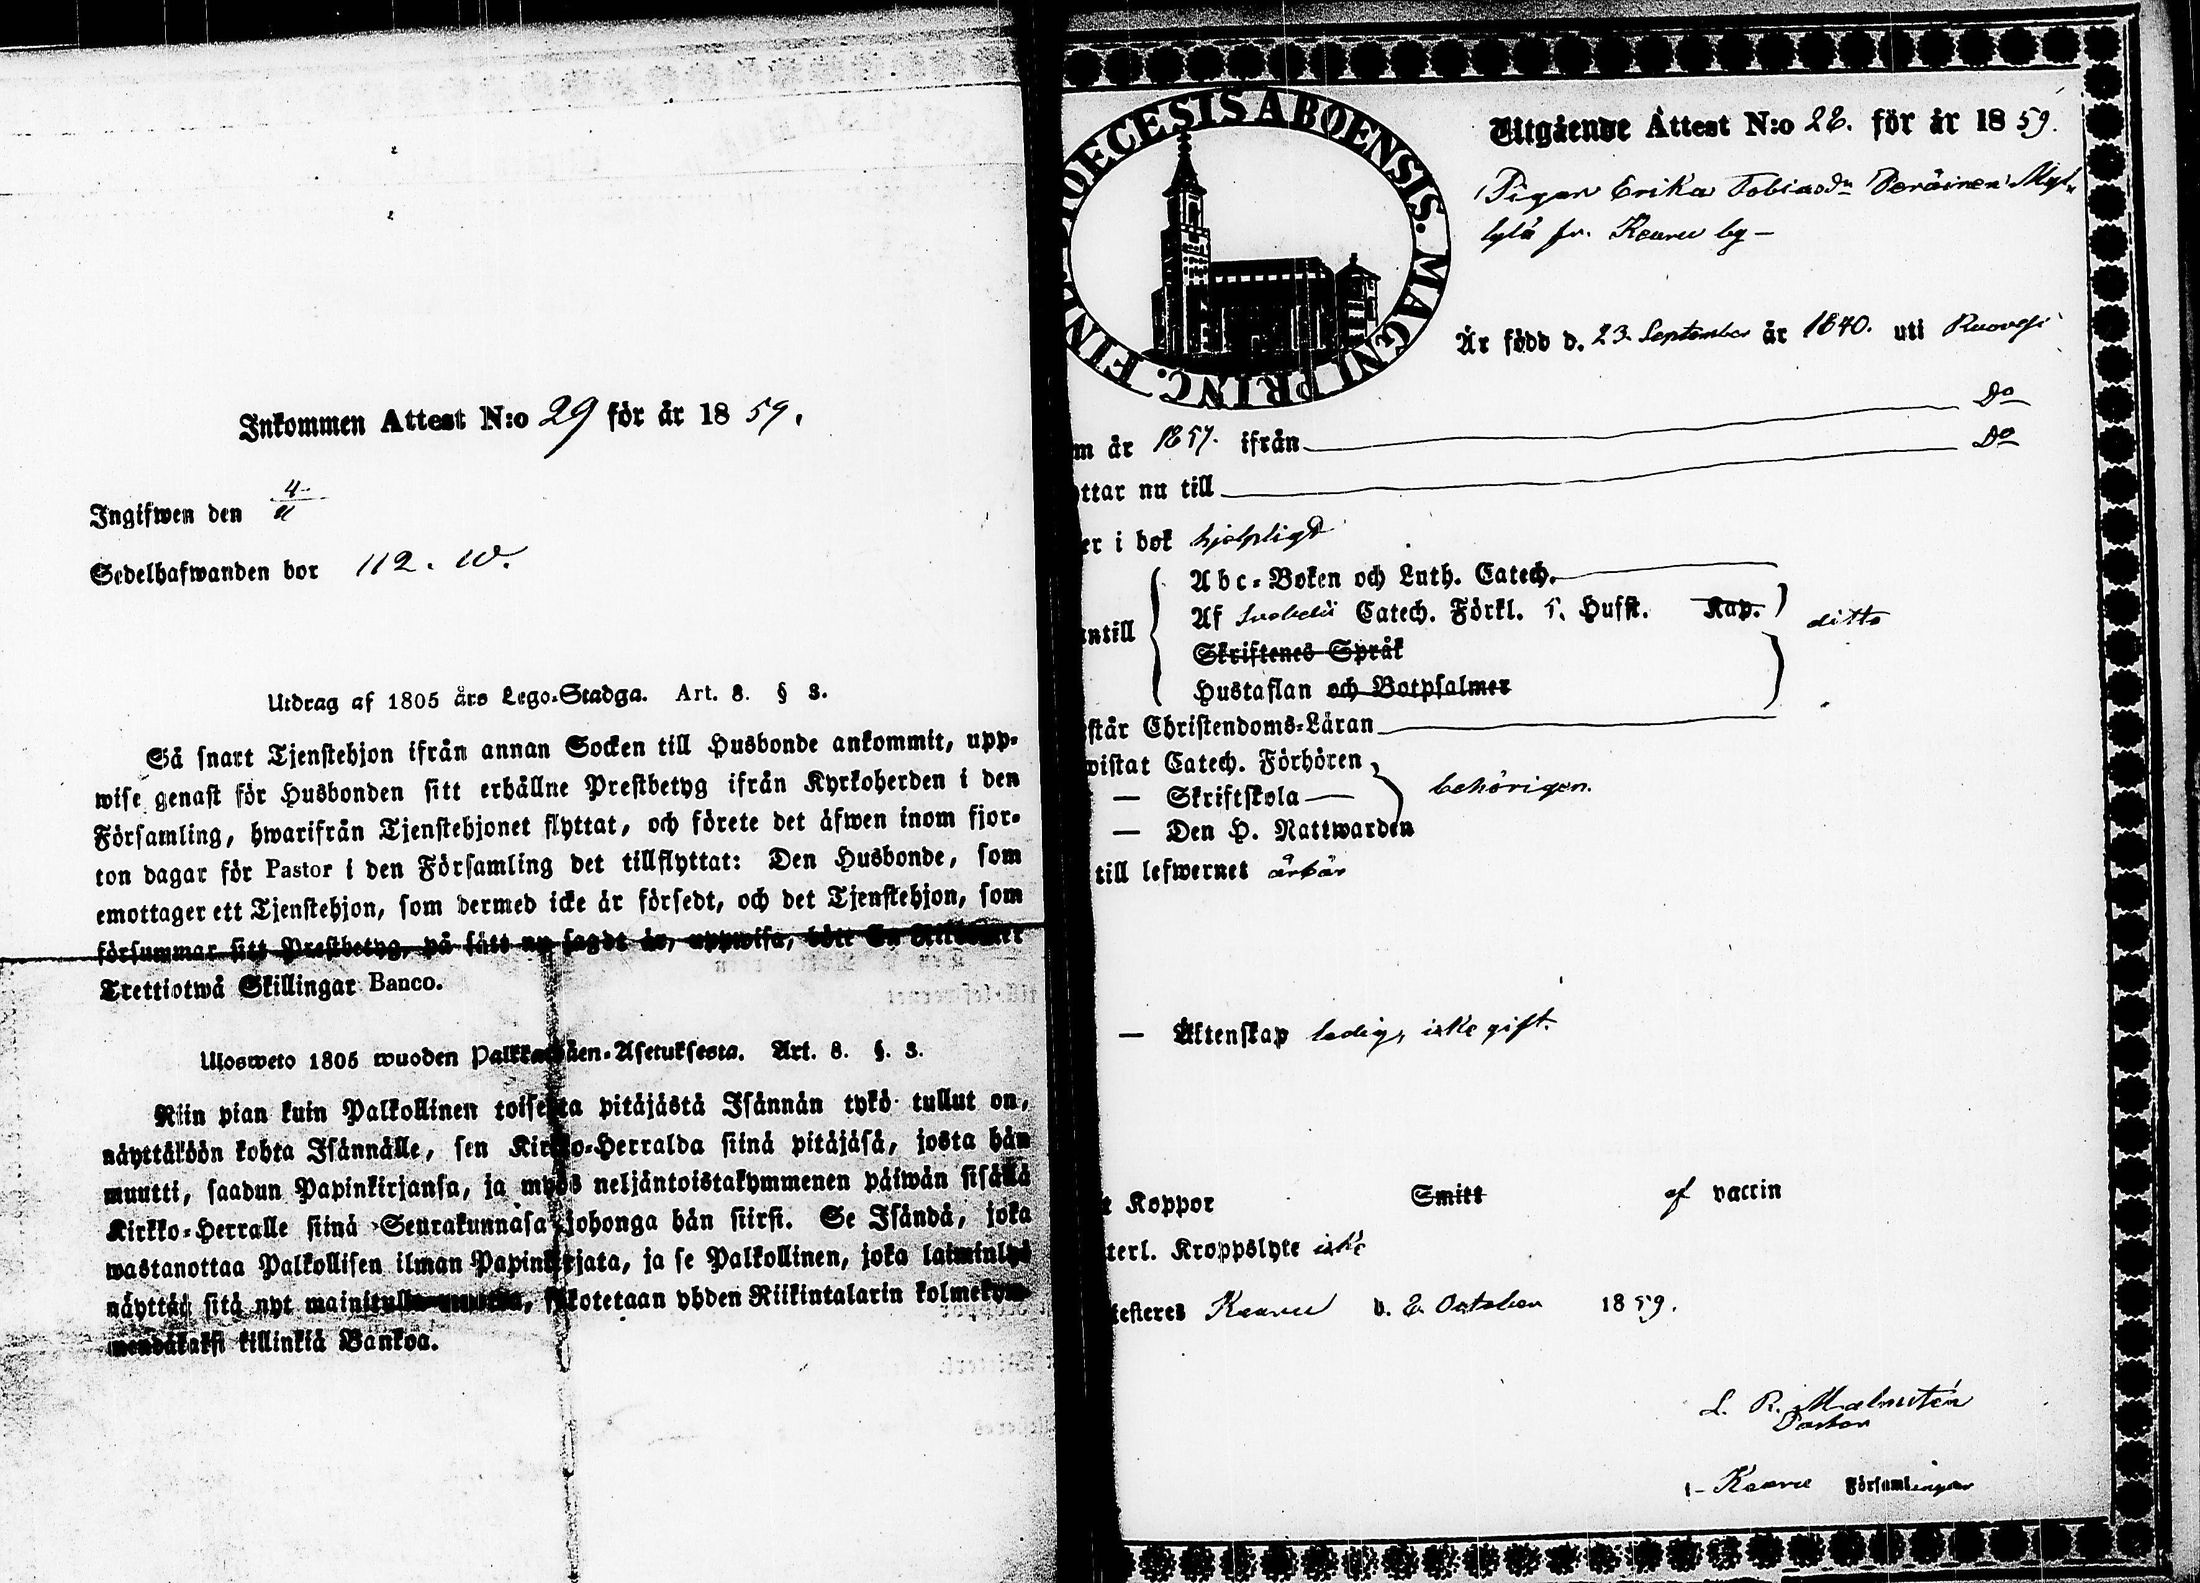 Inkommen Attest N:o 29 för år 1859.
Ingifwen den 4/11
Sedelhafwanden bor 112. W.
Utdrag af 1805 års Lego-Stadga. Art. 8. § 3.
Så snart Tjenstehjon ifrån annan Socken till Husbonde ankommit, upp-
wise genast för Husbonden sitt erhällne Prestbetyg ifrån Kyrkoherden i den
Församling, hwarifrån Tjenstehjonet flyttat, och förete det äfwen inom fjor-
ton dagar för Pastor i den Församling det tillflyttat: Den Husbonde, som
emottager ett Tjenstehjon, som dermed icke är försedt, och det Tjenstehjon, som
försummar sitt Prestbetyg, på sätt nu sagdt är, uppwisa, böte En Riksdaler
Trettiotwå Skillingar Banco.
Ulosweto 1805 wuoden Palkkawäen-Asetuksesta. Art. 8. §. 3.
Niin pian kuin Palkollinen toisesta pitäjästä Isännän tykö tullut on,
näyttäköön kohta Isännälle, sen Kirkko-Herralda siinä pitäjäsä, josta hän
muutti, saadun Papinkirjansa, ja myös neljäntoistakymmenen päiwän sisällä
Kirkko-Herralle siinä Seurakunnasa johonga hän siirsi. Se Isändä, joka
wastanottaa Palkollisen ilman Papinkirjata, ja se Palkollinen, joka laiminlyö
näyttää sitä nyt mainitulla muotoa, sakotetaan yhden Riikintalarin kolmekym-
mendäkaksi killinkiä Bankoa.
DIOECESIS ABOENSIS. MAGNI PRINC. FINL.
Utgående Attest N:o 22. för år 1859.
Pigan Erika Tobiasdr Peräinen Myl-
lylä fr. Keuru by –
Är född d. 23. September år 1840. uti Ruovesi
m år 1857. ifrån Do
ottar nu till Do
er i bok hjelpligt
Abc-Boken och Luth. Catech.
ntill Af Svebelii Catech. Förkl. 5. Hufst. Kap. ditto
Skriftenes Språk
Hustaflan och Botpsalmer
står Christendoms-Läran
wistat Catech. Förhören
— Skriftskola — behörigen.
— Den H. Nattwarden
till lefwernet ärbar
— Äktenskap ledig, icke gift.
t Koppor Smitt af vaccin
terl. Kroppslyte icke
testeres Keuru d. 2. October 1859.
L. R. Malmstén
Pastor
i Keuru Församlingar